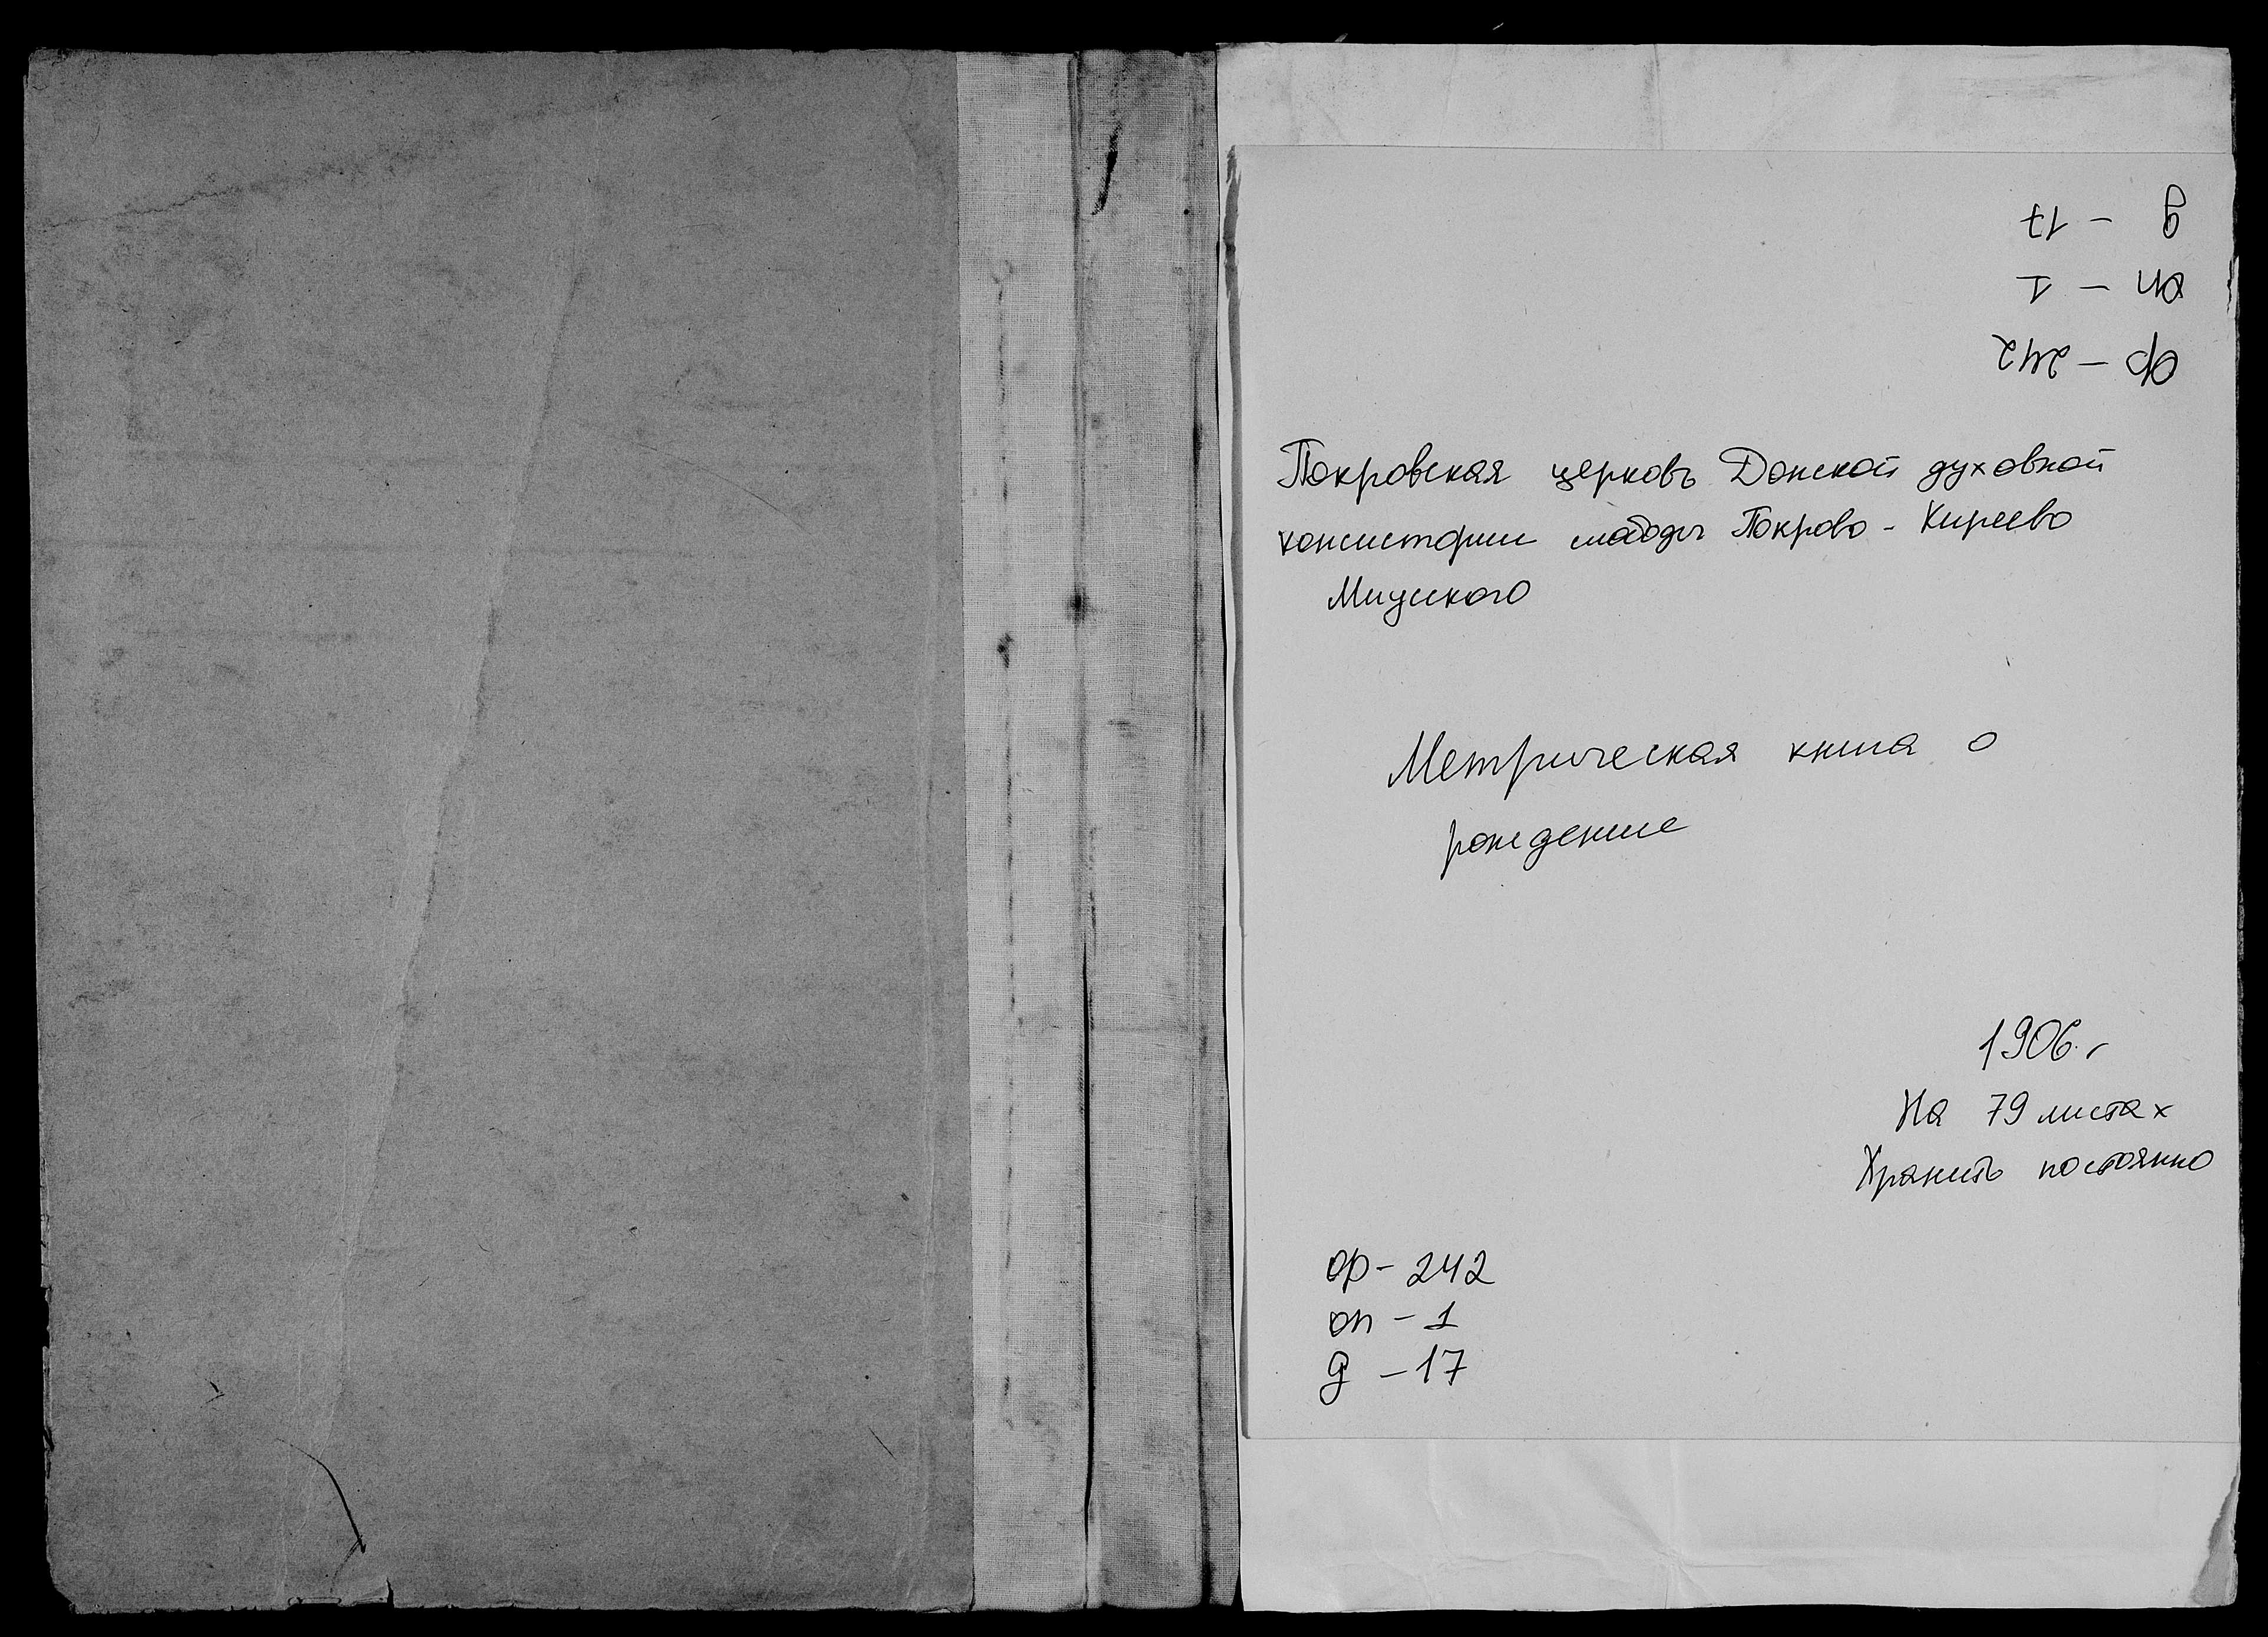 д - 17
оп - 1
ф - 242
Покровская церковь Донской духовной
консистории слободы Покрово - Киреево
Миусского
Метрическая книга о
рождение
1906 г
На 79 листах
Хранить постоянно
ф - 242
оп - 1
д - 17